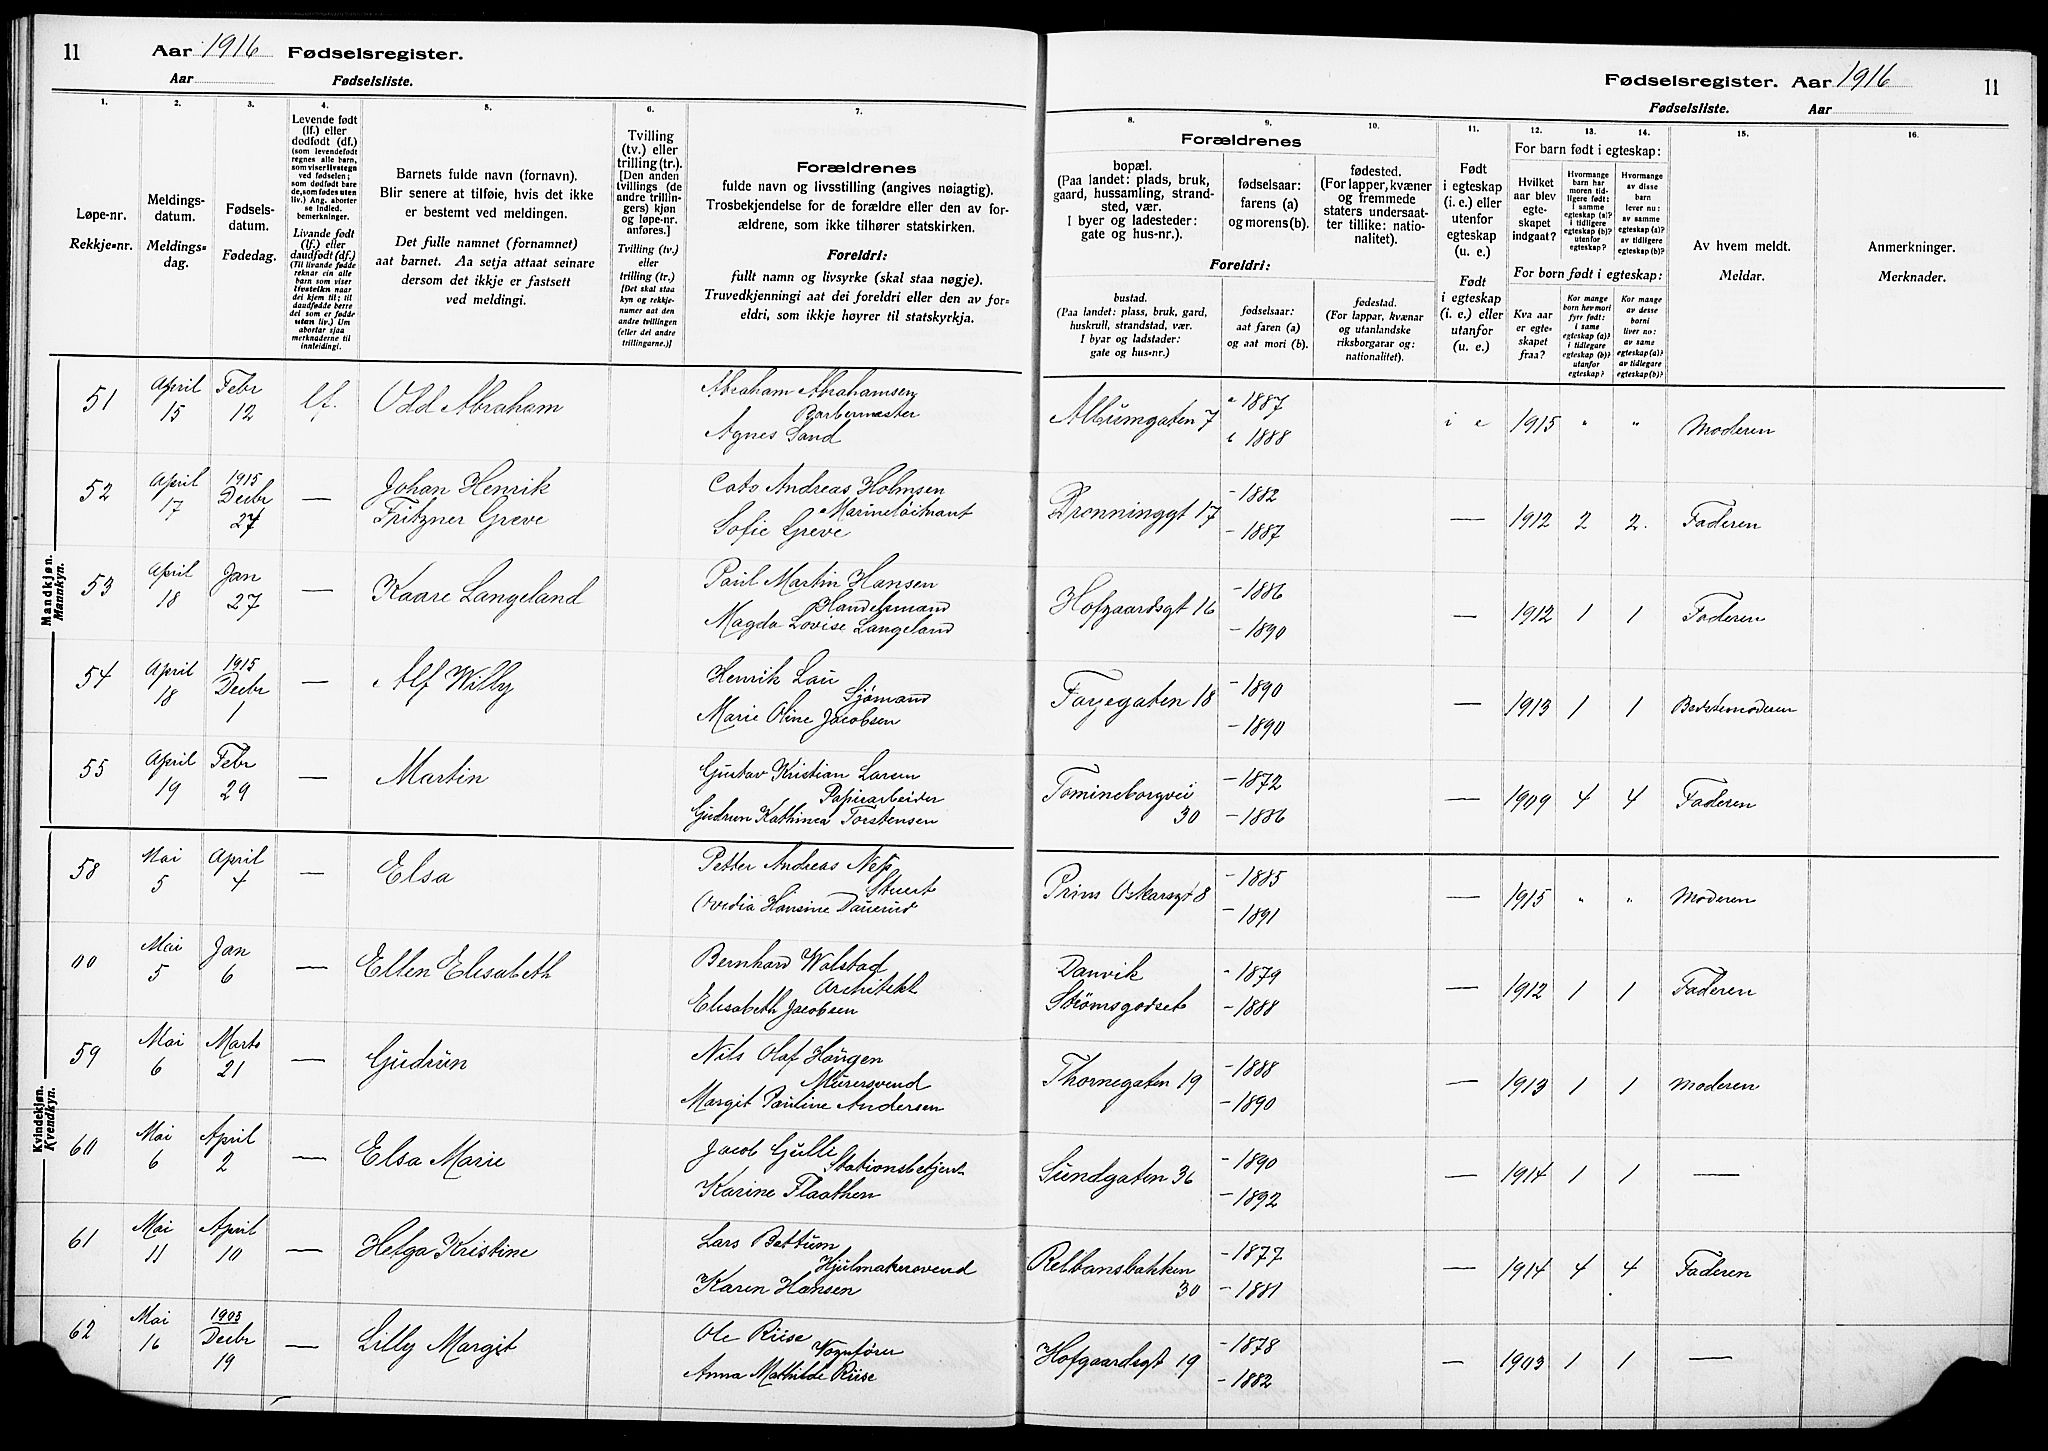 11 Aar 1916 Fødselsregister.
Aar Fødselsliste.
Fødselsregister. Aar 1916 11
Fødselsliste. Aar
1. 2. 3. 4. 5. 6. 7.
8. 9. 10. 11. 12. 13. 14. 15. 16.
Løpe-nr.
Rekkje-nr.
Meldings-
datum.
Meldings-
dag.
Fødsels-
datum.
Fødedag.
Levende født
(lf.) eller
dødfødt (df.)
(som levendefødt
regnes alle barn,
som viser livstegn
ved fødselen;
som dødfødt bare
de, som fødes uten
liv.) Ang. aborter
se indled.
bemerkninger.
Livande fødd
(lf.) eller
daudfødt (df.)
(Til livande fødde
reknar ein alle
barn som viser
livsteikn naar
dei kjem til; til
daudfødde berre
dei som er fødde
utan liv.) Um
abortar sjaa
merknaderne til
innleidingi.
Barnets fulde navn (fornavn).
Blir senere at tilføie, hvis det ikke
er bestemt ved meldingen.
Det fulle namnet (fornamnet)
aat barnet. Aa setja attaat seinare
dersom det ikkje er fastsett
ved meldingi.
Tvilling
(tv.) eller
trilling (tr.).
[Den anden
tvillings (de
andre trillin-
gers) kjøn
og løpe-nr.
anføres.]
Tvilling (tv.)
eller
trilling (tr.)
[Det skal staa
kyn og rekkje-
numer aat den
andre tvillingen
(eller dei andre
trillingarne.)]
Forældrenes
fulde navn og livsstilling (angives nøiagtig).
Trosbekjendelse for de forældre eller den av for-
ældrene, som ikke tilhører statskirken.
Foreldri:
fullt namn og livsyrke (skal staa nøgje).
Truvedkjenningi aat dei foreldri eller den av for-
eldri, som ikkje høyrer til statskyrkja.
Forældrenes
bopæl.
(Paa landet: plads, bruk,
gaard, hussamling, strand-
sted, vær.
I byer og ladesteder:
gate og hus-nr.).
fødselsaar:
farens (a)
og morens (b).
fødested.
(For lapper, kvæner
og fremmede
staters undersaat-
ter tillike: natio-
nalitet).
Foreldri:
bustad.
(Paa landet: plass, bruk, gard,
huskrull, strandstad, vær.
I byar og ladstader:
gate og hus-nr.)
fødselsaar:
aat faren (a)
og aat mori (b).
fødestad.
(For lappar, kvænar
og utanlandske
riksborgarar og:
nationalitet).
Født
i egteskap
(i. e.) eller
utenfor
egteskap
(u. e.)
Født
i egteskap
(i. e.) eller
utanfor
egteskap
(u. e.)
For barn født i egteskap:
Hvilket
aar blev
egte-
skapet
indgaat?
Hvormange
barn har
moren tid-
ligere født:
i samme
egteskap (a)?
i tidligere
egteskap (b)?
utenfor
egteskap?
Hvormange
av disse
barn
lever nu:
av samme
egteskap (a)?
av tidligere
egteskap (b)?
For born født i egteskap:
Kva aar
er egte-
skapet
fraa?
Kor mange
born hev mori
fyrr født:
i same
egteskap (a)?
i tidlegare
egteskap (b)?
utanfor
egteskap?
Kor mange
av desse
borni
liver no:
av same
egteskap (a)?
av tidlegare
egteskap (b)?
Av hvem meldt.
Meldar.
Anmerkninger.
Merknader.
Mandkjøn.
Mannkyn.
51 April 15 Febr 12 lf. Odd Abraham Abraham Abrahamsen Barbermester Agnes Sand Albumgaten 7 a 1887 b 1888 i e 1915 " " Moderen
52 April 17 1915 Decbr 27 — Johan Henrik Fritzner Greve Cato Andreas Holmsen Marineløitnant Sofie Greve Dronninggt 17 - 1882 - 1887 — 1912 2 2. Faderen
53 April 18 Jan 27 — Kaare Langeland Paul Martin Hansen Handelsmand Magda Lovise Langeland Hofgaardsgt 16 - 1886 - 1890 — 1912 1 1 Faderen
54 April 18 1915 Decbr 1 — Alf Willy Henrik Lau Sjømand Marie Oline Jacobsen Fayegaten 18 - 1890 - 1890 — 1913 1 1 Bedstemoderen
55 April 19 Febr 29 — Martin Gustav Kristian Larsen Papirarbeider Gudrun Kathinca Torstensen Tomineborgvei 30 - 1872 - 1886 — 1909 4 4 Faderen
Kvindekjøn.
Kvendkyn.
58 Mai 5 April 4 — Elsa Petter Andreas Næss Stuert Ovedia Hansine Dauerud Prins Oskarsgt 8 - 1885 - 1891 — 1915 " " Moderen
00 Mai 5 Jan 6 — Ellen Elisabeth Bernhard Wolstad Architekt Elisabeth Jacobsen Danvik Strømsgodset - 1879 - 1888 — 1912 1 1 Faderen
59 Mai 6 Marts 21 — Gudrun Nils Olaf Haugen Murersvend Margit Pauline Andersen Thornegaten 19 - 1888 - 1890 — 1913 1 1 Moderen
60 Mai 6 April 2 — Elsa Marie Jacob Gulli Stationsbetjent Karine Flaathen Sundgaten 36 - 1890 - 1892 — 1914 1 1 —
61 Mai 11 April 10 — Helga Kristine Lars Bottum Hjulmakersvend Karen Hansen Relbansbakken 30 - 1877 - 1881 — 1914 4 4 Faderen
62 Mai 16 1903 Decbr 19 — Lilly Margit Ole Riise Vognfører Anna Mathilde Riise Hofgaardsgt 19 - 1878 - 1882 — 1903 1 1 —